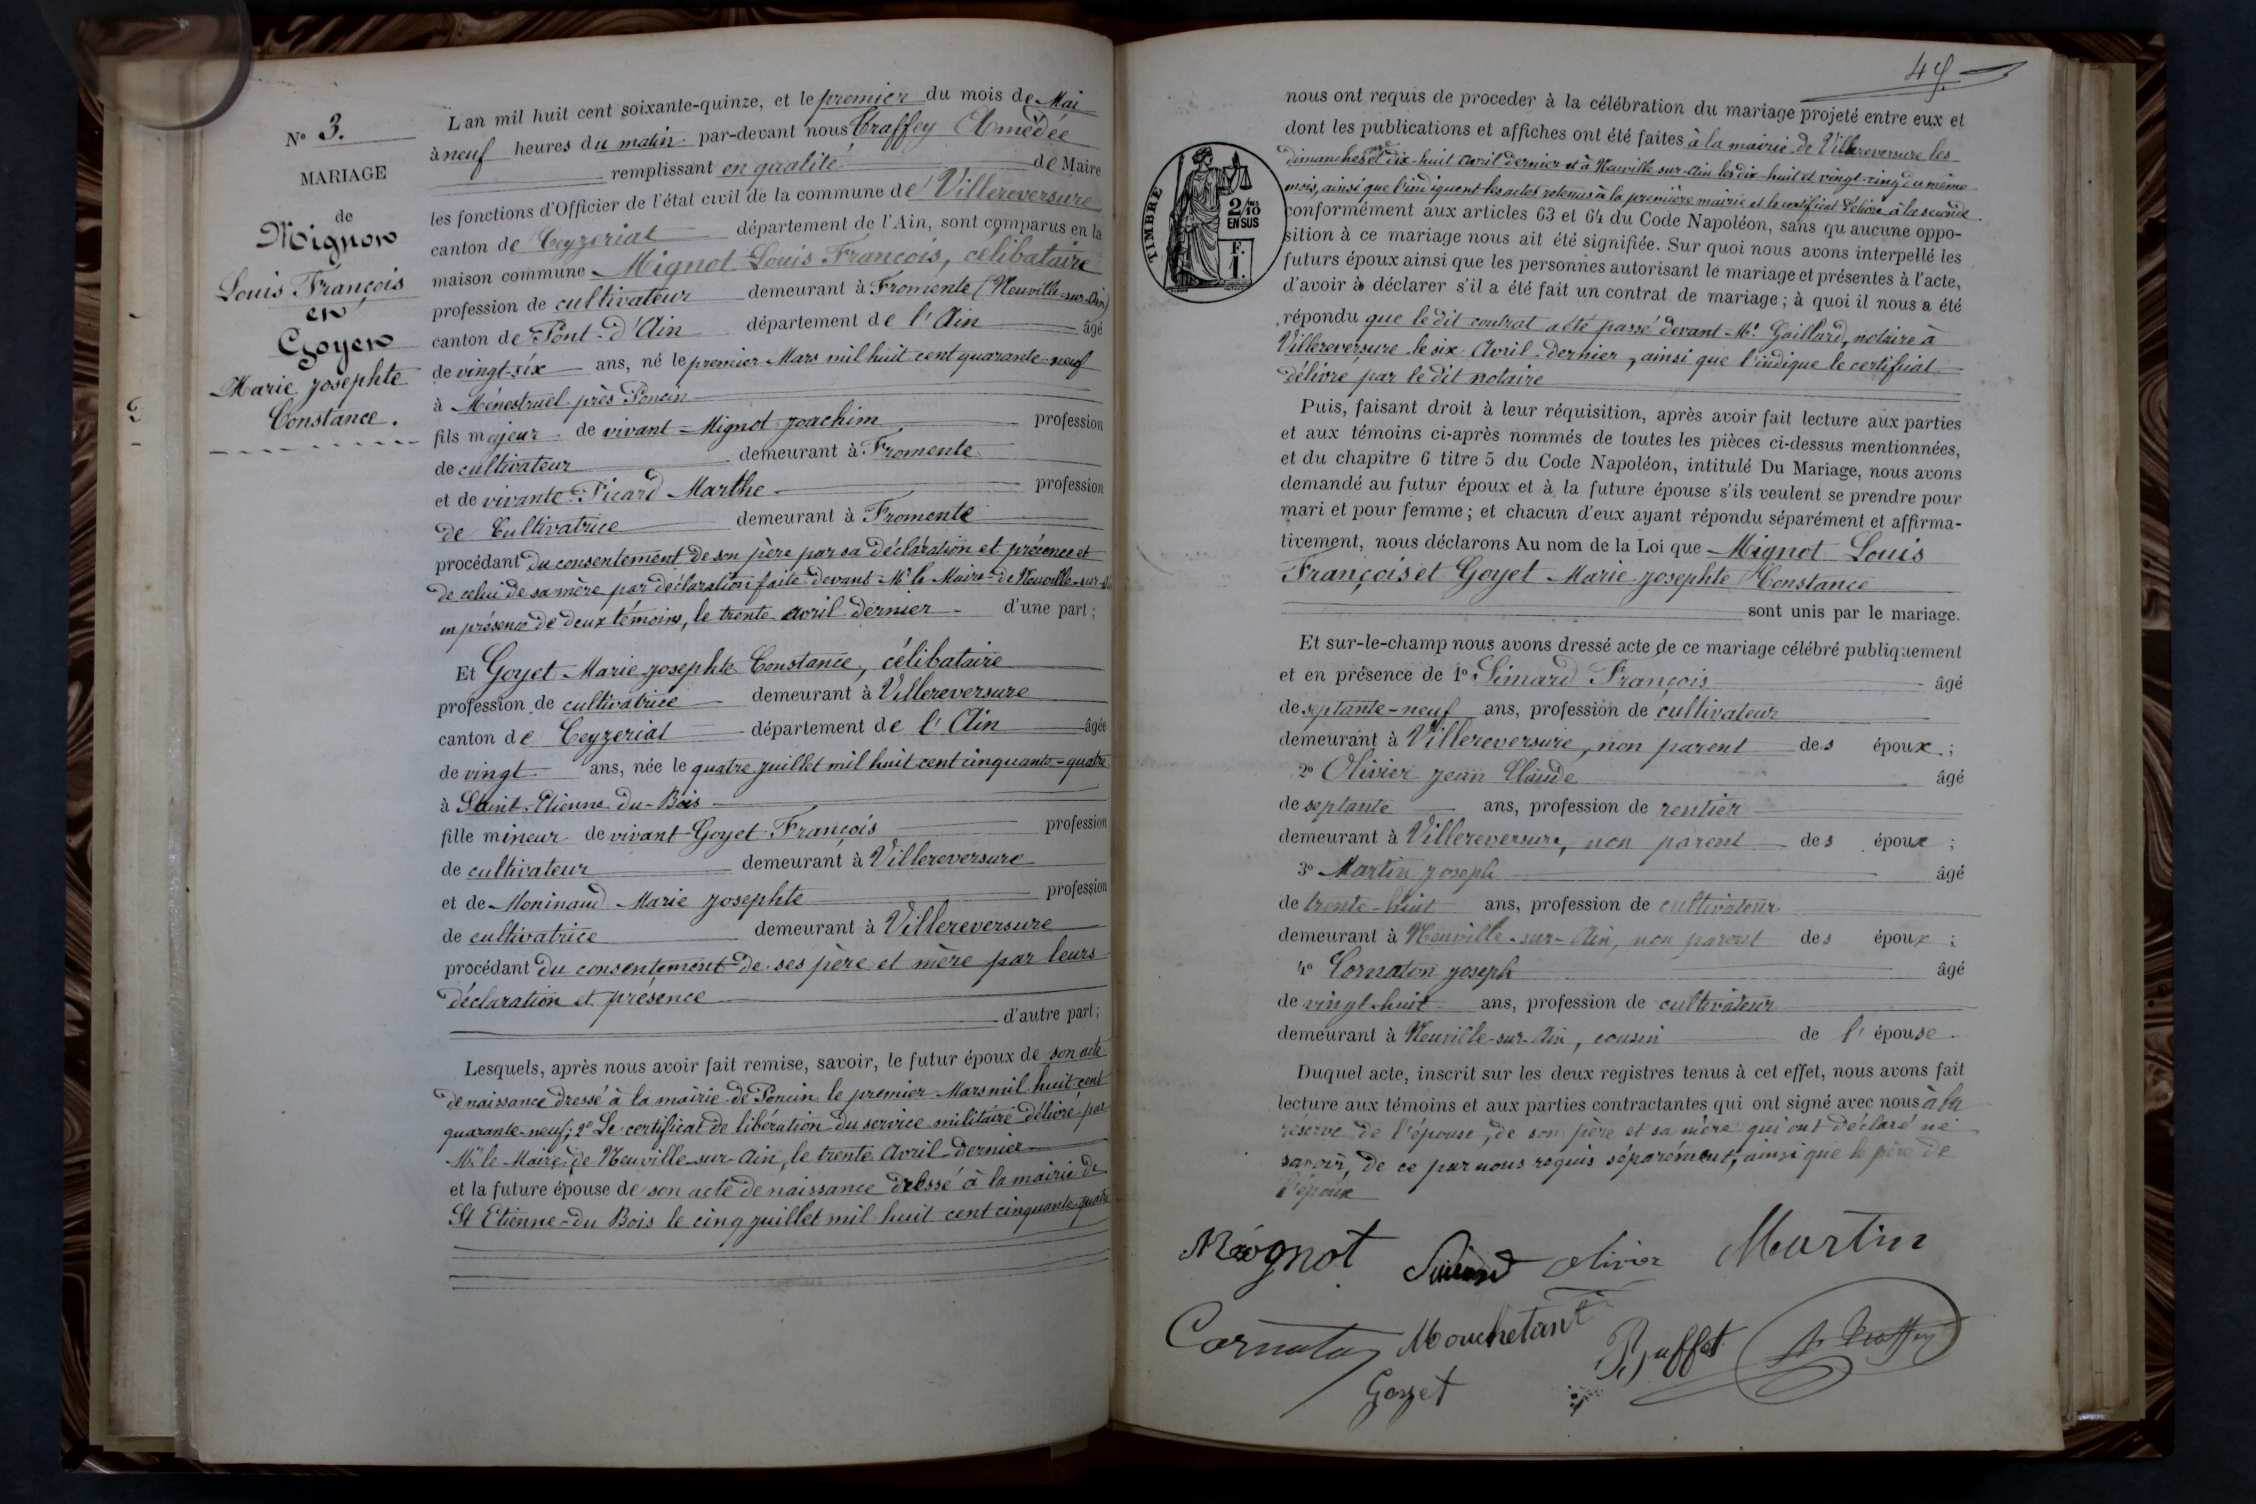 N° 3.
MARIAGE
de
Mignon
Louis François
et
Goyen
Marie Josephte
Constance.
L'an mil huit cent soixante-quinze, et le premier du mois de Mai
à neuf heures du matin par-devant nous Traffey Amédée
remplissant en qualité de Maire
les fonctions d'Officier de l'état civil de la commune de Villereversure
canton de Ceyzeriat département de l'Ain, sont comparus en la
maison commune Mignot Louis François, célibataire
profession de cultivateur demeurant à Fromente (Neuville-sur-Ain)
canton de Pont-d'Ain département de l'Ain âgé
de vingt-six ans, né le premier Mars mil huit cent quarante-neuf
à Ménestruel près Poncin
fils majeur de vivant Mignot Joachim profession
de cultivateur demeurant à Fromente
et de vivante Picard Marthe profession
de Cultivatrice demeurant à Fromente
procédant du consentement de son père par sa déclaration et présence et
de celui de sa mère par déclaration faite devant Mr le Maire de Neuville-sur-Ain
en présence de deux témoins, le trente avril dernier d'une part;
Et Goyet Marie Josephte Constance, célibataire
profession de cultivatrice demeurant à Villereversure
canton de Ceyzeriat département de l'Ain âgée
de vingt ans, née le quatre juillet mil huit cent cinquante-quatre
à Saint-Etienne-du-Bois
fille mineur de vivant Goyet François profession
de cultivateur demeurant à Villereversure
et de Moninaud Marie Josephte profession
de cultivatrice demeurant à Villereversure
procédant du consentement de ses père et mère par leurs
déclaration et présence
d'autre part;
Lesquels, après nous avoir fait remise, savoir, le futur époux de son acte
de naissance dressé à la mairie de Poncin le premier Mars mil huit cent
quarante-neuf; 2° Le certificat de libération du service militaire délivré par
Mr le Maire de Neuville-sur-Ain, le trente Avril dernier
et la future épouse de son acte de naissance dressé à la mairie de
St Etienne-du Bois le cinq juillet mil huit cent cinquante-quatre
49
nous ont requis de proceder à la célébration du mariage projeté entre eux et
dont les publications et affiches ont été faites à la mairie de Villereversure les
dimanches et dix-huit Avril dernier et à Neuville-sur-Ain les dix-huit et vingt-cinq du même
mois, ainsi que l'indiquent les actes retenus à la première mairie et le certificat délivré à la seconde
TIMBRE
2/10 ENSUS
F. 1.
conformément aux articles 63 et 64 du Code Napoléon, sans qu'aucune oppo-
sition à ce mariage nous ait été signifiée. Sur quoi nous avons interpellé les
futurs époux ainsi que les personnes autorisant le mariage et présentes à l'acte,
d'avoir à déclarer s'il a été fait un contrat de mariage; à quoi il nous a été
répondu que le dit contrat a été passé devant Me Gaillard, notaire à
Villereversure le six Avril dernier, ainsi que l'indique le certificat
délivré par le dit notaire
Puis, faisant droit à leur réquisition, après avoir fait lecture aux parties
et aux témoins ci-après nommés de toutes les pièces ci-dessus mentionnées,
et du chapitre 6 titre 5 du Code Napoléon, intitulé Du Mariage, nous avons
demandé au futur époux et à la future épouse s'ils veulent se prendre pour
mari et pour femme; et chacun d'eux ayant répondu séparément et affirma-
tivement, nous déclarons Au nom de la Loi que Mignot Louis
François et Goyet Marie Josephte Constance
sont unis par le mariage.
Et sur-le-champ nous avons dressé acte de ce mariage célébré publiquement
et en présence de 1° Simard François âgé
de septante-neuf ans, profession de cultivateur
demeurant à Villereversure, non parent des époux;
2° Olivier Jean Claude âgé
de septante ans, profession de rentier
demeurant à Villereversure, non parent des époux;
3° Martin Joseph âgé
de trente-huit ans, profession de cultivateur
demeurant à Neuville-sur-Ain, non parent des époux;
4° Cornaton Joseph âgé
de vingt-huit ans, profession de cultivateur
demeurant à Neuville-sur-Ain, cousin de l'épouse.
Duquel acte, inscrit sur les deux registres tenus à cet effet, nous avons fait
lecture aux témoins et aux parties contractantes qui ont signé avec nous à la
réserve de l'épouse, de son père et sa mère qui ont déclaré ne
savoir, de ce par nous requis séparément, ainsi que le père de
l'époux
Mignot Simard Olivier Martin
Cornaton Mouchetant Buffet A. Traffey
Goyet